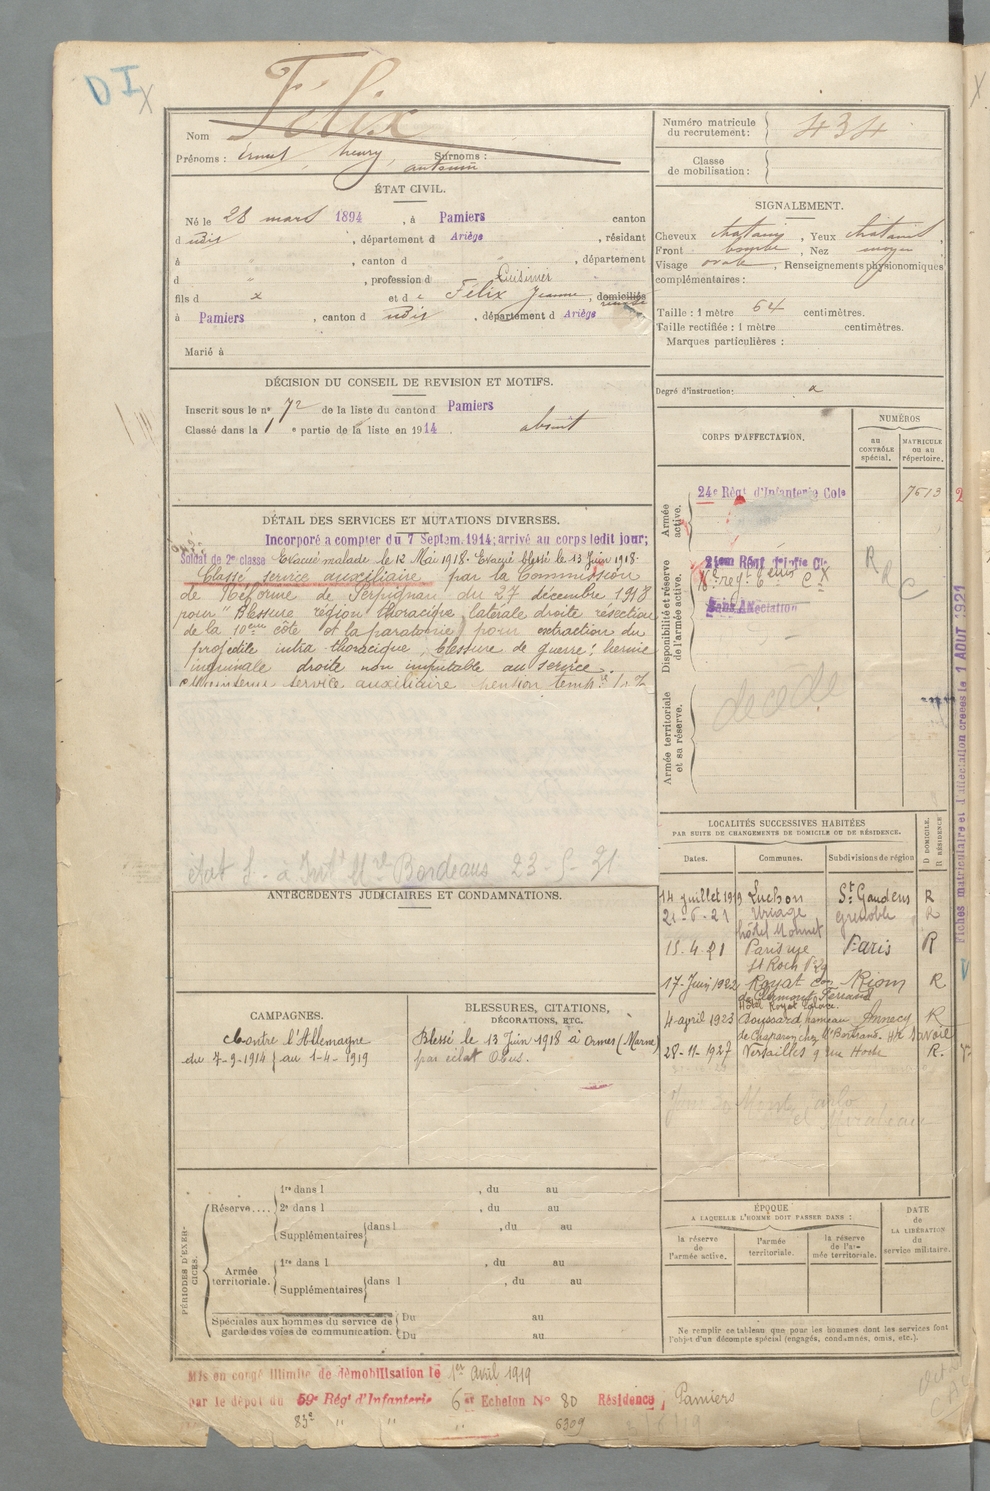 DI X
Félix
Nom
Prénoms : Ernest, henry, Surnoms :
antonin
ÉTAT CIVIL.
Né le 28 mars 1894, à Pamiers canton
d udit, département d Ariège, résidant
à , canton d , département
d " , profession d Cuisinier
fils d x et d e Félix Jeanne, domiciliés
à Pamiers, canton d udit, département d Ariège
Marié à
DÉCISION DU CONSEIL DE REVISION ET MOTIFS.
Inscrit sous le n° 72 de la liste du canton d Pamiers
Classé dans la 1 e partie de la liste en 1914. absent
DÉTAIL DES SERVICES ET MUTATIONS DIVERSES.
Incorporé a compter du 7 Septem. 1914; arrivé au corps ledit jour;
Soldat de 2e classe Evacué malade le 12 Mai 1918. Evacué blessé le 13 Juin 1918.
Classé service auxiliaire par la Commission
de Réforme de Perpignan du 27 décembre 1918
pour "Blessure région thoracique, latérale droite résection
de la 10eme côte et laparatomie pour extraction du
projectile intra thoracique, blessure de guerre; hernie
inguinale droite non imputable au service.
Maintenu service auxiliaire pension temp.re
Bordeaux 23-5-21
ANTÉCÉDENTS JUDICIAIRES ET CONDAMNATIONS.
CAMPAGNES.
Contre l'Allemagne
du 7-9-1914 au 1-4-1919
BLESSURES, CITATIONS,
DÉCORATIONS, ETC.
Blessé le 13 Juin 1918 à Ormes (Marne)
par éclat Obus.
PÉRIODES D'EXERCICES.
Réserve....
1re dans l , du au
2e dans l , du au
Supplémentaires dans l , du au
Armée territoriale.
1re dans l , du au
Supplémentaires dans l , du au
Spéciales aux hommes du service de garde des voies de communication.
Du au
Du au
Mis en congé illimité de démobilisation le 1er Avril 1919
par le dépôt du 59e Régt d'Infanterie 6e Echelon N° 80 Résidence, Pamiers
83e " " " 6309
Numéro matricule du recrutement : 434
Classe de mobilisation :
SIGNALEMENT.
Cheveux chatains, Yeux chatains,
Front bombé, Nez moyen
Visage ovale, Renseignements physionomiques
complémentaires :
Taille : 1 mètre 64 centimètres.
Taille rectifiée : 1 mètre centimètres.
Marques particulières :
Degré d'instruction : a
CORPS D'AFFECTATION.
NUMÉROS
au CONTRÔLE spécial.
MATRICULE ou au répertoire.
Armée active.
24e Régt d'Infanterie Cole 7613 2
Disponibilité et réserve de l'armée active.
Sans Affectation
R R C
Armée territoriale et sa réserve.
decede
Fiches matriculaire et d'affectation créées le 1 AOUT 1921
LOCALITÉS SUCCESSIVES HABITÉES
PAR SUITE DE CHANGEMENTS DE DOMICILE OU DE RÉSIDENCE.
Dates. Communes. Subdivisions de région D DOMICILE. R RÉSIDENCE
14 juillet 1919 Luchon St Gaudens R
21-6-21 Uriage Grenoble R
hôtel Monnet
15-4-21 Paris rue Paris R
St Roch
17-Juin 1922 Royat con Riom R
de Clermont Ferrand
Hôtel Royat Palace.
4 april 1923 Doussard hameau Annecy R
de Chaparon chez Mr Bertrand. Hte Savoie
28-11-1927 Versailles 9 rue Hoche R.
ÉPOQUE
A LAQUELLE L'HOMME DOIT PASSER DANS :
la réserve de l'armée active.
l'armée territoriale.
la réserve de l'armée territoriale.
DATE de LA LIBÉRATION du service militaire.
Ne remplir ce tableau que pour les hommes dont les services font
l'objet d'un décompte spécial (engagés, condamnés, omis, etc.).